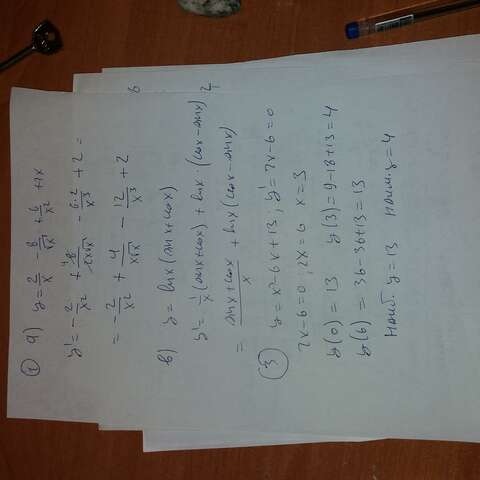 ① а) y = 2/x - 8/√x + 6/x² + 2x
y' = -2/x² + 8/2x√x - 6·2/x³ + 2 =
= -2/x² + 4/x√x - 12/x³ + 2
в) y = lnx(sinx+cosx)
y' = 1/x (sinx+cosx) + lnx · (cosx-sinx)
= sinx+cosx/x + lnx(cosx-sinx)
③ y = x²-6x+13; y' = 2x-6=0
2x-6=0; 2x=6 x=3
y(0) = 13 y(3) = 9-18+13=4
y(6) = 36-36+13=13
Наиб. y=13 Наим. y=4
6
4